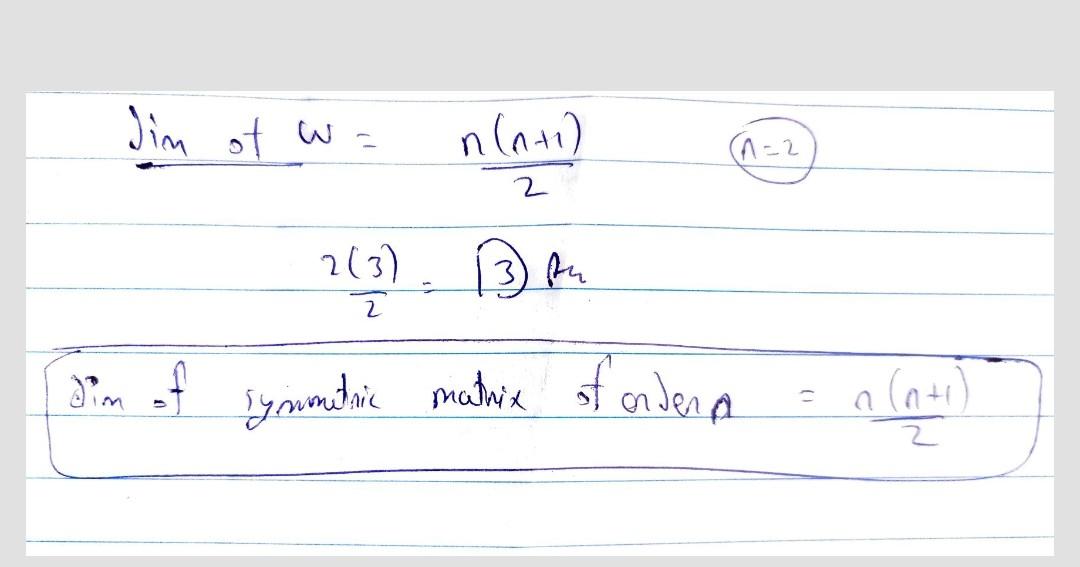 Dim of W = n(n+1)/2 n=2
2(3)/2 = 3 Ans
Dim of symmetric matrix of order n = n(n+1)/2